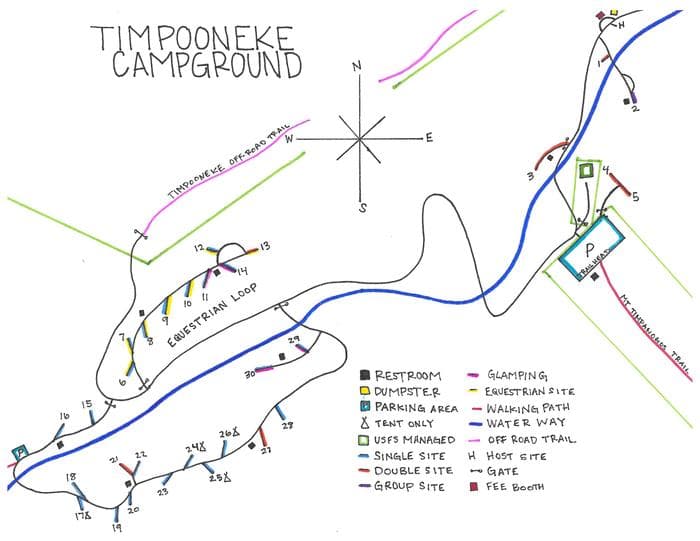 TIMPOONEKE
CAMPGROUND
N
W
E
S
TIMPOONEKE OFF-ROAD TRAIL
H
1
2
3
4
5
P
TRAILHEAD
MT TIMPANOGOS TRAIL
12
13
14
11
10
9
8
7
6
EQUESTRIAN LOOP
29
30
15
16
P
28
27
26
25
24
23
22
21
20
19
18
17
RESTROOM
DUMPSTER
PARKING AREA
TENT ONLY
USFS MANAGED
SINGLE SITE
DOUBLE SITE
GROUP SITE
GLAMPING
EQUESTRIAN SITE
WALKING PATH
WATER WAY
OFF ROAD TRAIL
H HOST SITE
GATE
FEE BOOTH